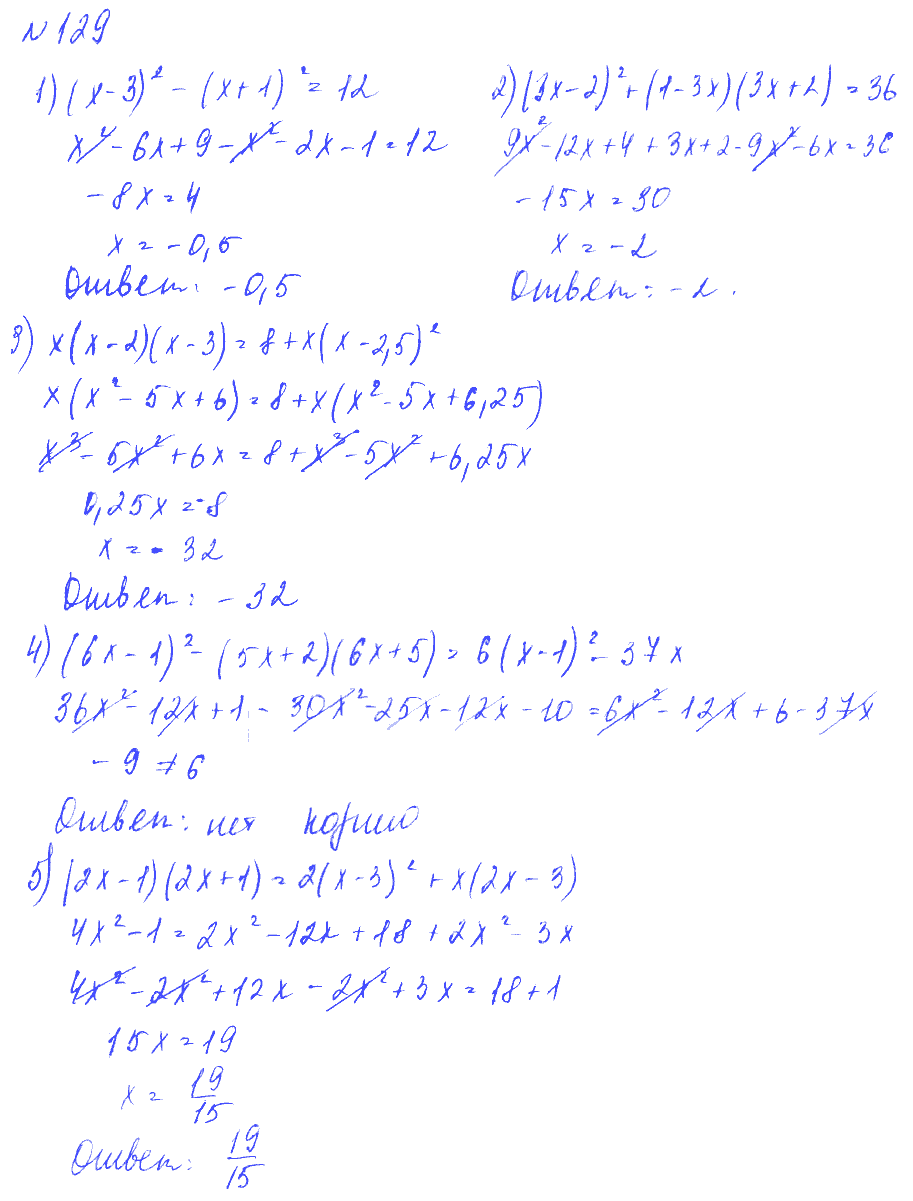 N 129
1) (x-3)² - (x+1)² = 12
x² - 6x + 9 - x² - 2x - 1 = 12
-8x = 4
x = -0,5
Ответ: -0,5
2) (3x-2)² + (1-3x)(3x+2) = 36
9x² - 12x + 4 + 3x + 2 - 9x² - 6x = 36
-15x = 30
x = -2
Ответ: -2.
3) x(x-2)(x-3) = 8 + x(x-2,5)²
x(x² - 5x + 6) = 8 + x(x² - 5x + 6,25)
x³ - 5x² + 6x = 8 + x³ - 5x² + 6,25x
0,25x = -8
x = - 32
Ответ: -32
4) (6x-1)² - (5x+2)(6x+5) = 6(x-1)² - 37x
36x² - 12x + 1 - 30x² - 25x - 12x - 10 = 6x² - 12x + 6 - 37x
-9 ≠ 6
Ответ: нет корней
5) (2x-1)(2x+1) = 2(x-3)² + x(2x-3)
4x² - 1 = 2x² - 12x + 18 + 2x² - 3x
4x² - 2x² + 12x - 2x² + 3x = 18 + 1
15x = 19
x = 19/15
Ответ: 19/15